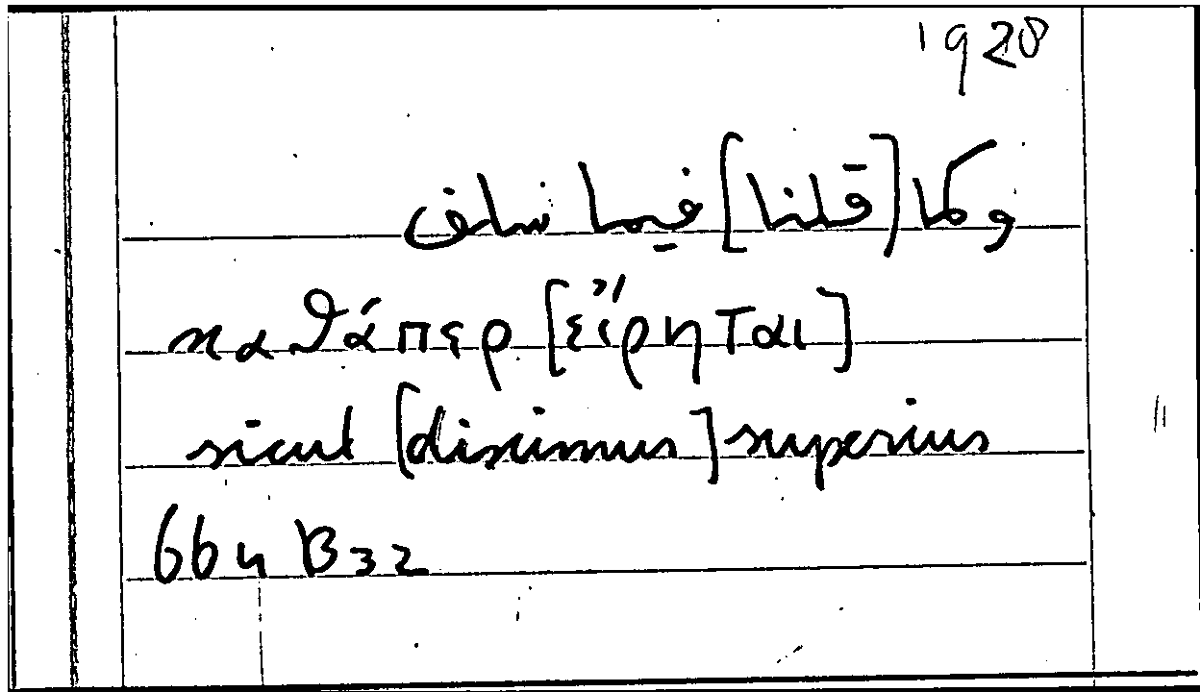 1928
وكما [قلنا] فيما سلف
καθάπερ [εἴρηται]
sicut [diximus] superius
664 B32